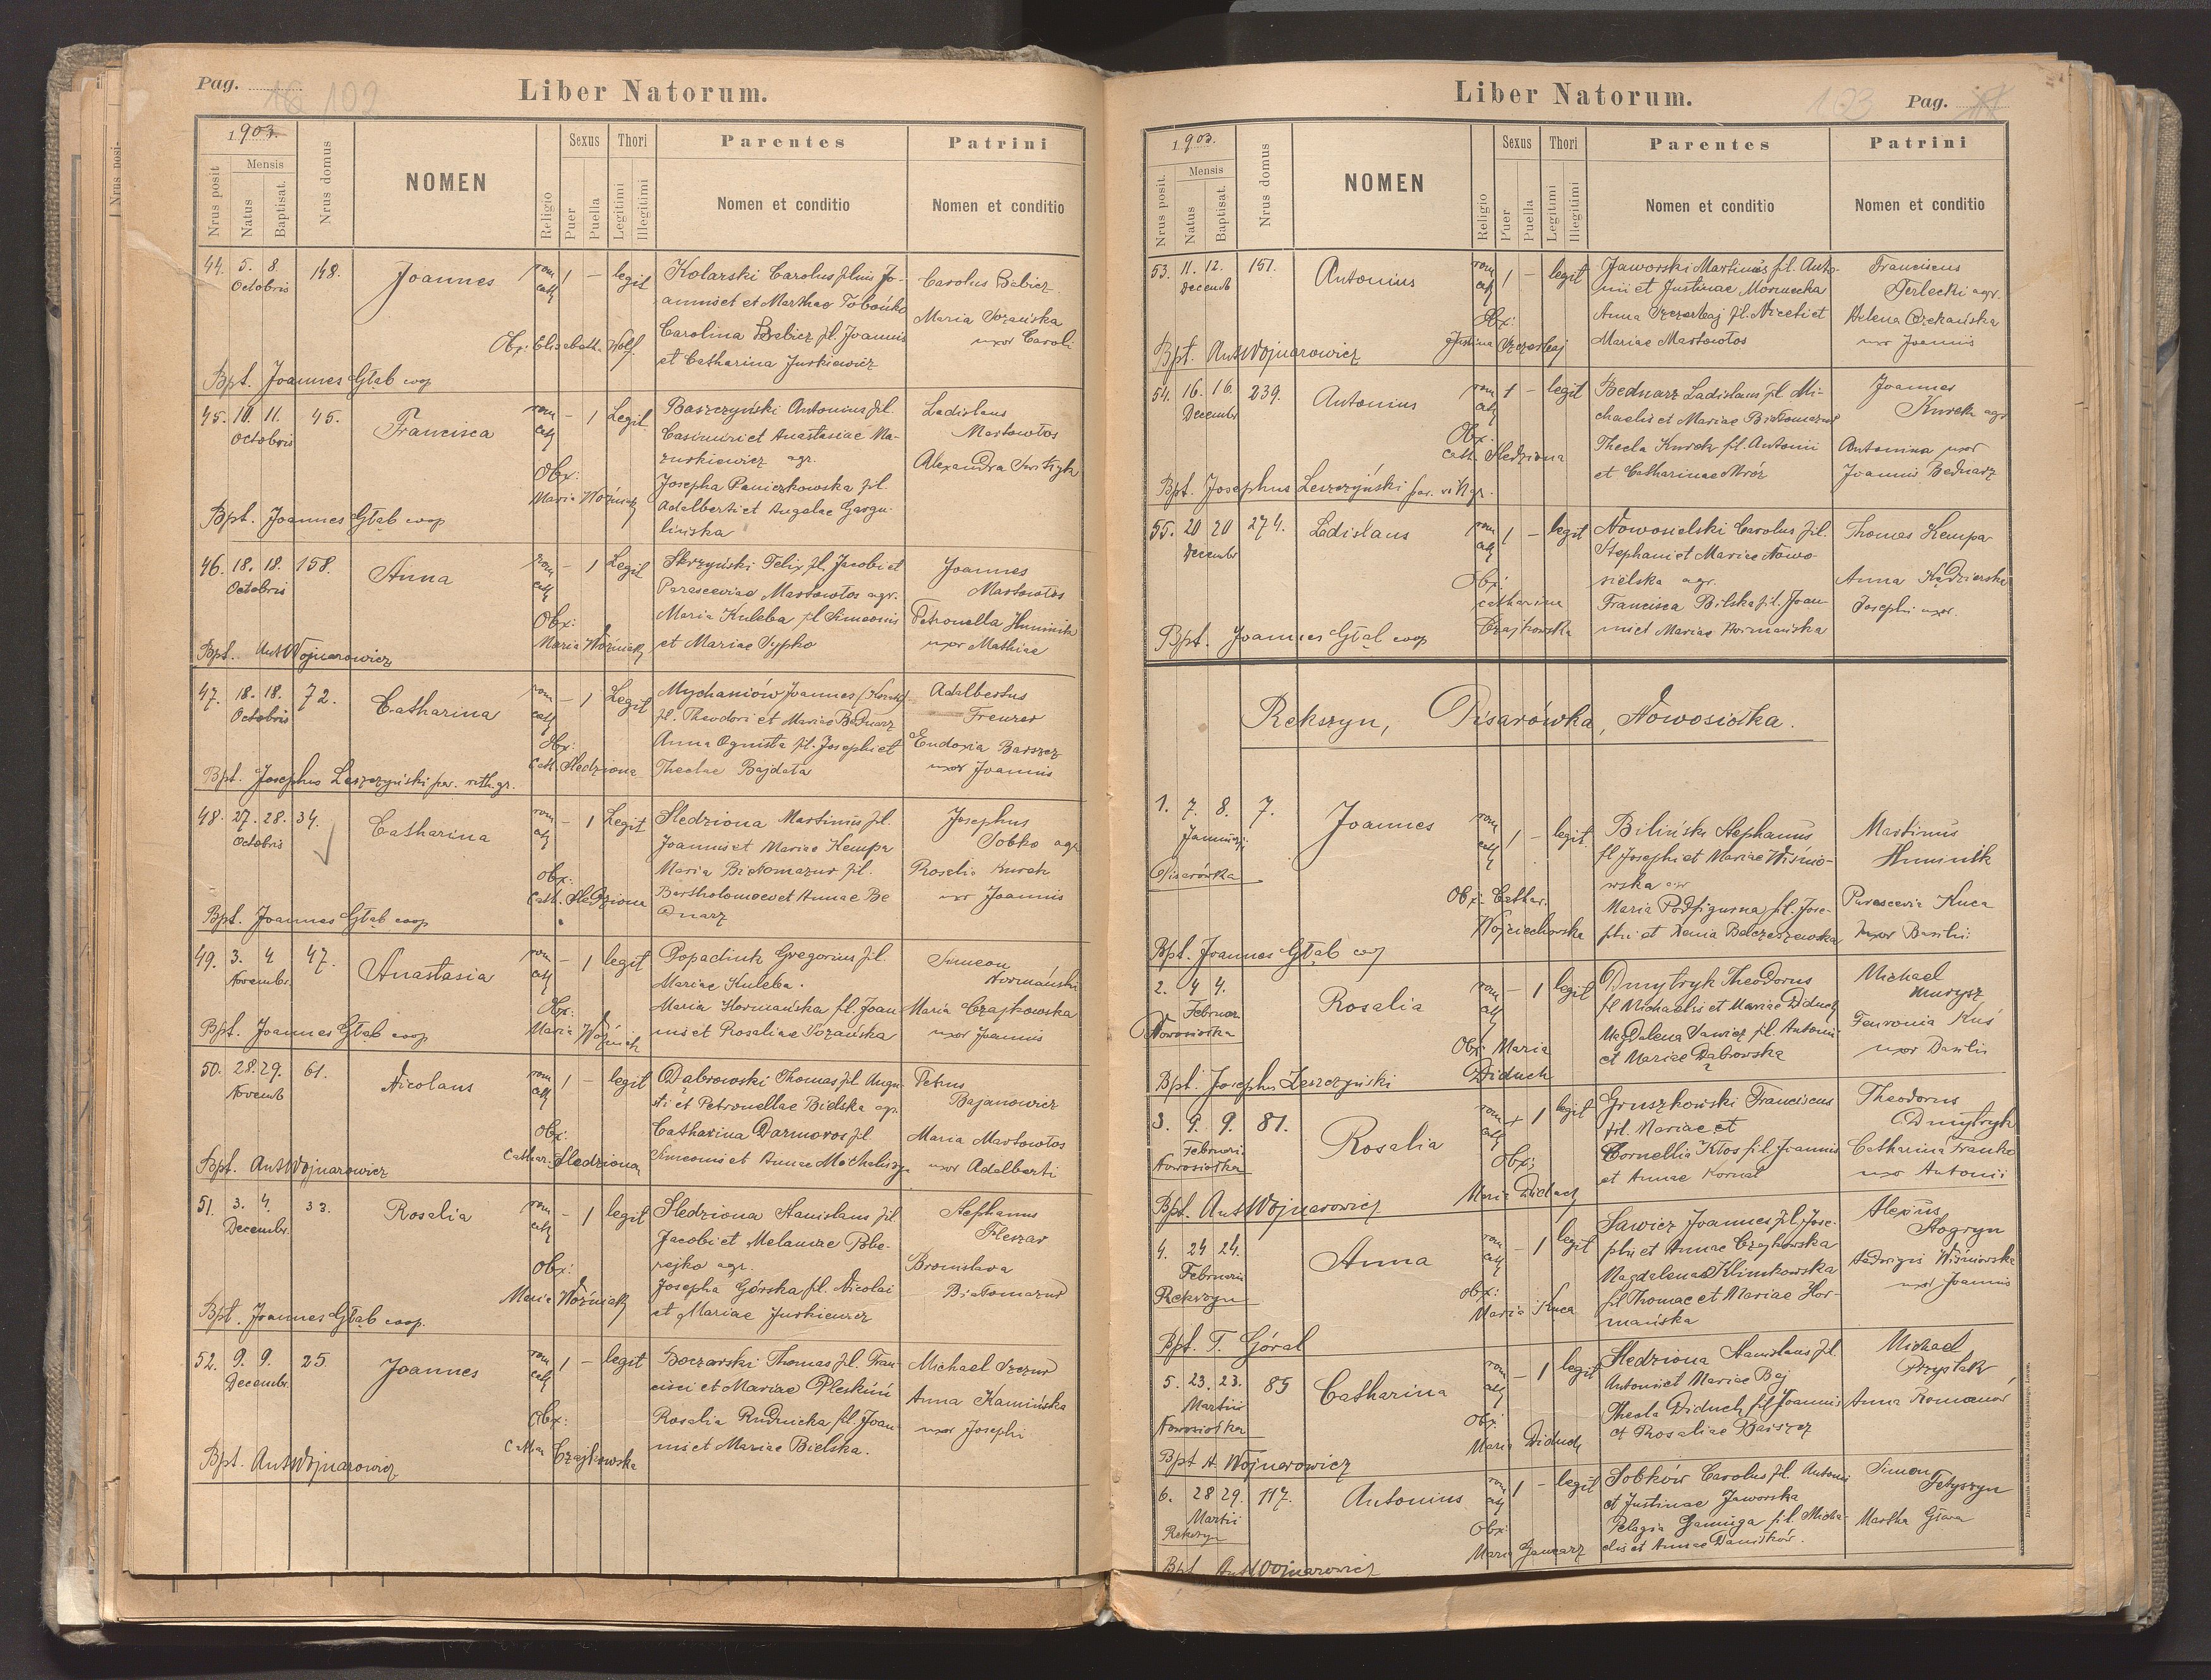 Pag. 16 102
Liber Natorum.
1903.
Nrus posit
Mensis
Natus
Baptisat.
Nrus domus
NOMEN
Religio
Sexus
Puer
Puella
Thori
Legitimi
Illegitimi
Parentes
Nomen et conditio
Patrini
Nomen et conditio
44. 5. 8. 148. Joannes rom 1 – legit Kolarski Carolus filius Jo- Carolus Babicz
Octobris cath annis et et Marthae
Maria Sozańska
Carolina Babicz fil. Joannis uxor Caroli
Obx: Elisabeth Wolf. et Catharina Jurkiewicz
Bpt. Joannes Głąb coop
45. 10. 11. 45. Francisca rom – 1 Legit Baszczyński Antonius fil. Ladislaus
Octobris cath Casimiri et Anastasiae Ma- Martowłos
zurkiewicz agr. Alexandra
Obx: Josepha Paniczkowska fil.
Maria Woźniak Adalberti et Angelae Gargu-
Bpt. Joannes Głąb coop lińska
46. 18. 18. 158. Anna rom – 1 Legit Skrzyński Felix fil. Jacobi et Joannes
Octobris cath Parasceviae Martowłos agr. Martowłos
Obx: Maria Kuleba fil Simeonis Petronella Huminik
Maria Woźniak et Mariae Sypko uxor Mathiae
Bpt. Ant Wojnarowicz
47. 18. 18. 72. Catharina rom – 1 Legit Mychaniów Joannes Adalbertus
Octobris cath fil. Theodori et Mariae Bednarz Frenzer
Obx: Anna Ognista fil. Josephi et Eudoxia Barszcz
Cath. Śledziona Theclae Bajdała uxor Joannis
Bpt. Josephus Leszczyński par. rith. gr.
48. 27. 28. 34. Catharina rom – 1 Legit Śledziona Martinus fil. Josephus
Octobris cath Joannis et Mariae Kempa Sobko agr
obx: Maria Białomazur fil. Rosalia Kurek
Cath. Śledziona Bartholomaei et Annae Be uxor Joannis
Bpt. Joannes Głąb coop dnarz
49. 3. 4 47. Anastasia rom – 1 legit Popadiuk Gregorius fil. Simeon
Novembr. cath Mariae Kuleba. Hormański
Obx: Maria Hormańska fil. Joan Maria Czajkowska
Bpt. Joannes Głąb coop Maria Woźniak nis et Rosaliae Sozańska uxor Joannis
50. 28. 29. 61. Nicolaus rom 1 – legit Dąbrowski Thomas fil. Augu Petrus
Novemb cath sti et Petronellae Bielska agr. Bajanowicz
obx: Catharina Darmoros fil Maria Martowłos
Cathar. Śledziona Simeonis et Annae uxor Adalberti
Bpt. Ant Wojnarowicz
51. 3. 4. 33. Rosalia rom – 1 legit Śledziona Stanislaus fil. Stephanus
Decembr. cath Jacobi et Melaniae Fleszar
obx: rejko agr. Bronislava
Maria Woźniak Josepha Górska fil. Nicolai Białomazur
Bpt. Joannes Głąb coop. et Mariae Jurkiewicz
52. 9. 9. 25 Joannes rom 1 – legit Boczarski Thomas fil. Fran- Michael Szczur
Decembr. cath cisci et Mariae
Obx: Rosalia Rudnicka fil. Joan- Anna Kamińska
Cathar Czajkowska nis et Mariae Bielska. uxor Josephi
Bpt. Ant Wojnarowicz
Liber Natorum.
103 Pag. 17
1903.
Nrus posit.
Mensis
Natus
Baptisat.
Nrus domus
NOMEN
Religio
Sexus
Puer
Puella
Thori
Legitimi
Illegitimi
Parentes
Nomen et conditio
Patrini
Nomen et conditio
53. 11. 12. 151. Antonius rom 1 – legit Jaworski Martinus fil. Anto- Franciscus
Decemb cath nii et Justinae Terlecki agr.
Obx: Anna fil. Niceti et Helena
Justina Mariae Martowłos uxor Joannis
Bpt. Ant Wojnarowicz
54. 16. 16. 239. Antonius rom 1 – legit Bednarz Ladislaus fil Mi- Joannes
Decembr cath chaelis et Mariae Białomazur Kurek agr
Obx. Thecla Kurek fil. Antonii Antonina uxor
Cath. Śledziona et Catharinae Mróz Joannis Bednarz
Bpt. Josephus Leszczyński par. rit gr.
55. 20 20 274. Ladislaus rom 1 – legit Nowosielski Carolus fil. Thomas Kempa
Decembr cath Stephani et Mariae Nowo
Obx: sielska agr. Anna Kędzierska
Catharina Francisca Bilska fil. Joan- Josephi uxor.
Czajkowska nis et Mariae Hormańska
Bpt. Joannes Głąb coop
Rekszyn, Pisarówka, Nowosiołka.
1. 7. 8. 7. Joannes rom 1 – legit. Biliński Stephanus Martinus
Januarii cath fil Josephi et Mariae Wiśnio- Huminik
Pisarówka wska agr
Obx: Cathar. Maria Podfigurna fil. Jose- Parascevia Kuca
Wojciechowska phi et Xenia Uxor Basilii
Bpt. Joannes Głąb coop
2. 4 4. Rosalia rom – 1 legit Dmytryk Theodorus Michael
Februar. cath fil Michaelis et Mariae Diduch
Nowosiołka Magdalena Sawicz fil. Antonii Fevronia Kuś
Obx: Maria et Mariae Dąbrowska uxor Basilii
Bpt. Josephus Leszczyński Diduch
3. 9. 9. 81. Rosalia rom + 1 legit Gruszkowski Franciscus Theodorus
Februari cath fil. Mariae et Dmytryk
Nowosiołka Obx: Cornellia Kłos fil. Joannis Catharina Franko
Maria Diduch et Annae Kornat uxor Antonii
Bpt. Ant Wojnarowicz
4. 24 24. Anna rom – 1 legit Sawicz Joannes fil. Jose- Alexius
Februarii cath phi et Annae Czajkowska Stogryn
Rekszyn obx: Magdalena Klimkowska Hedvigis Wiśniowska
Maria Kuca fil Thomae et Mariae Hor- uxor Joannis
mańska
Bpt. T. Góral
5. 23. 23. 85 Catharina rom – 1 legit Śledziona Stanislaus fil. Michael
Martii cath Antonii et Mariae Baj Przystak
Nowosiołka Obx: Thecla Diduch fil Joannis Anna Romanów
Maria Diduch et Rosaliae Barszcz
Bpt A Wojnarowicz
6. 28 29. 117. Antonius rom 1 – legit Sobków Carolus fil. Antonii Simon
Martii cath et Justinae Jaworska Fetyszyn
Rekszyn Obx: Pelagia fil. Micha- Martha
Maria Ganczarz elis et Annae Daniłków.
Bpt. Ant Wojnarowicz